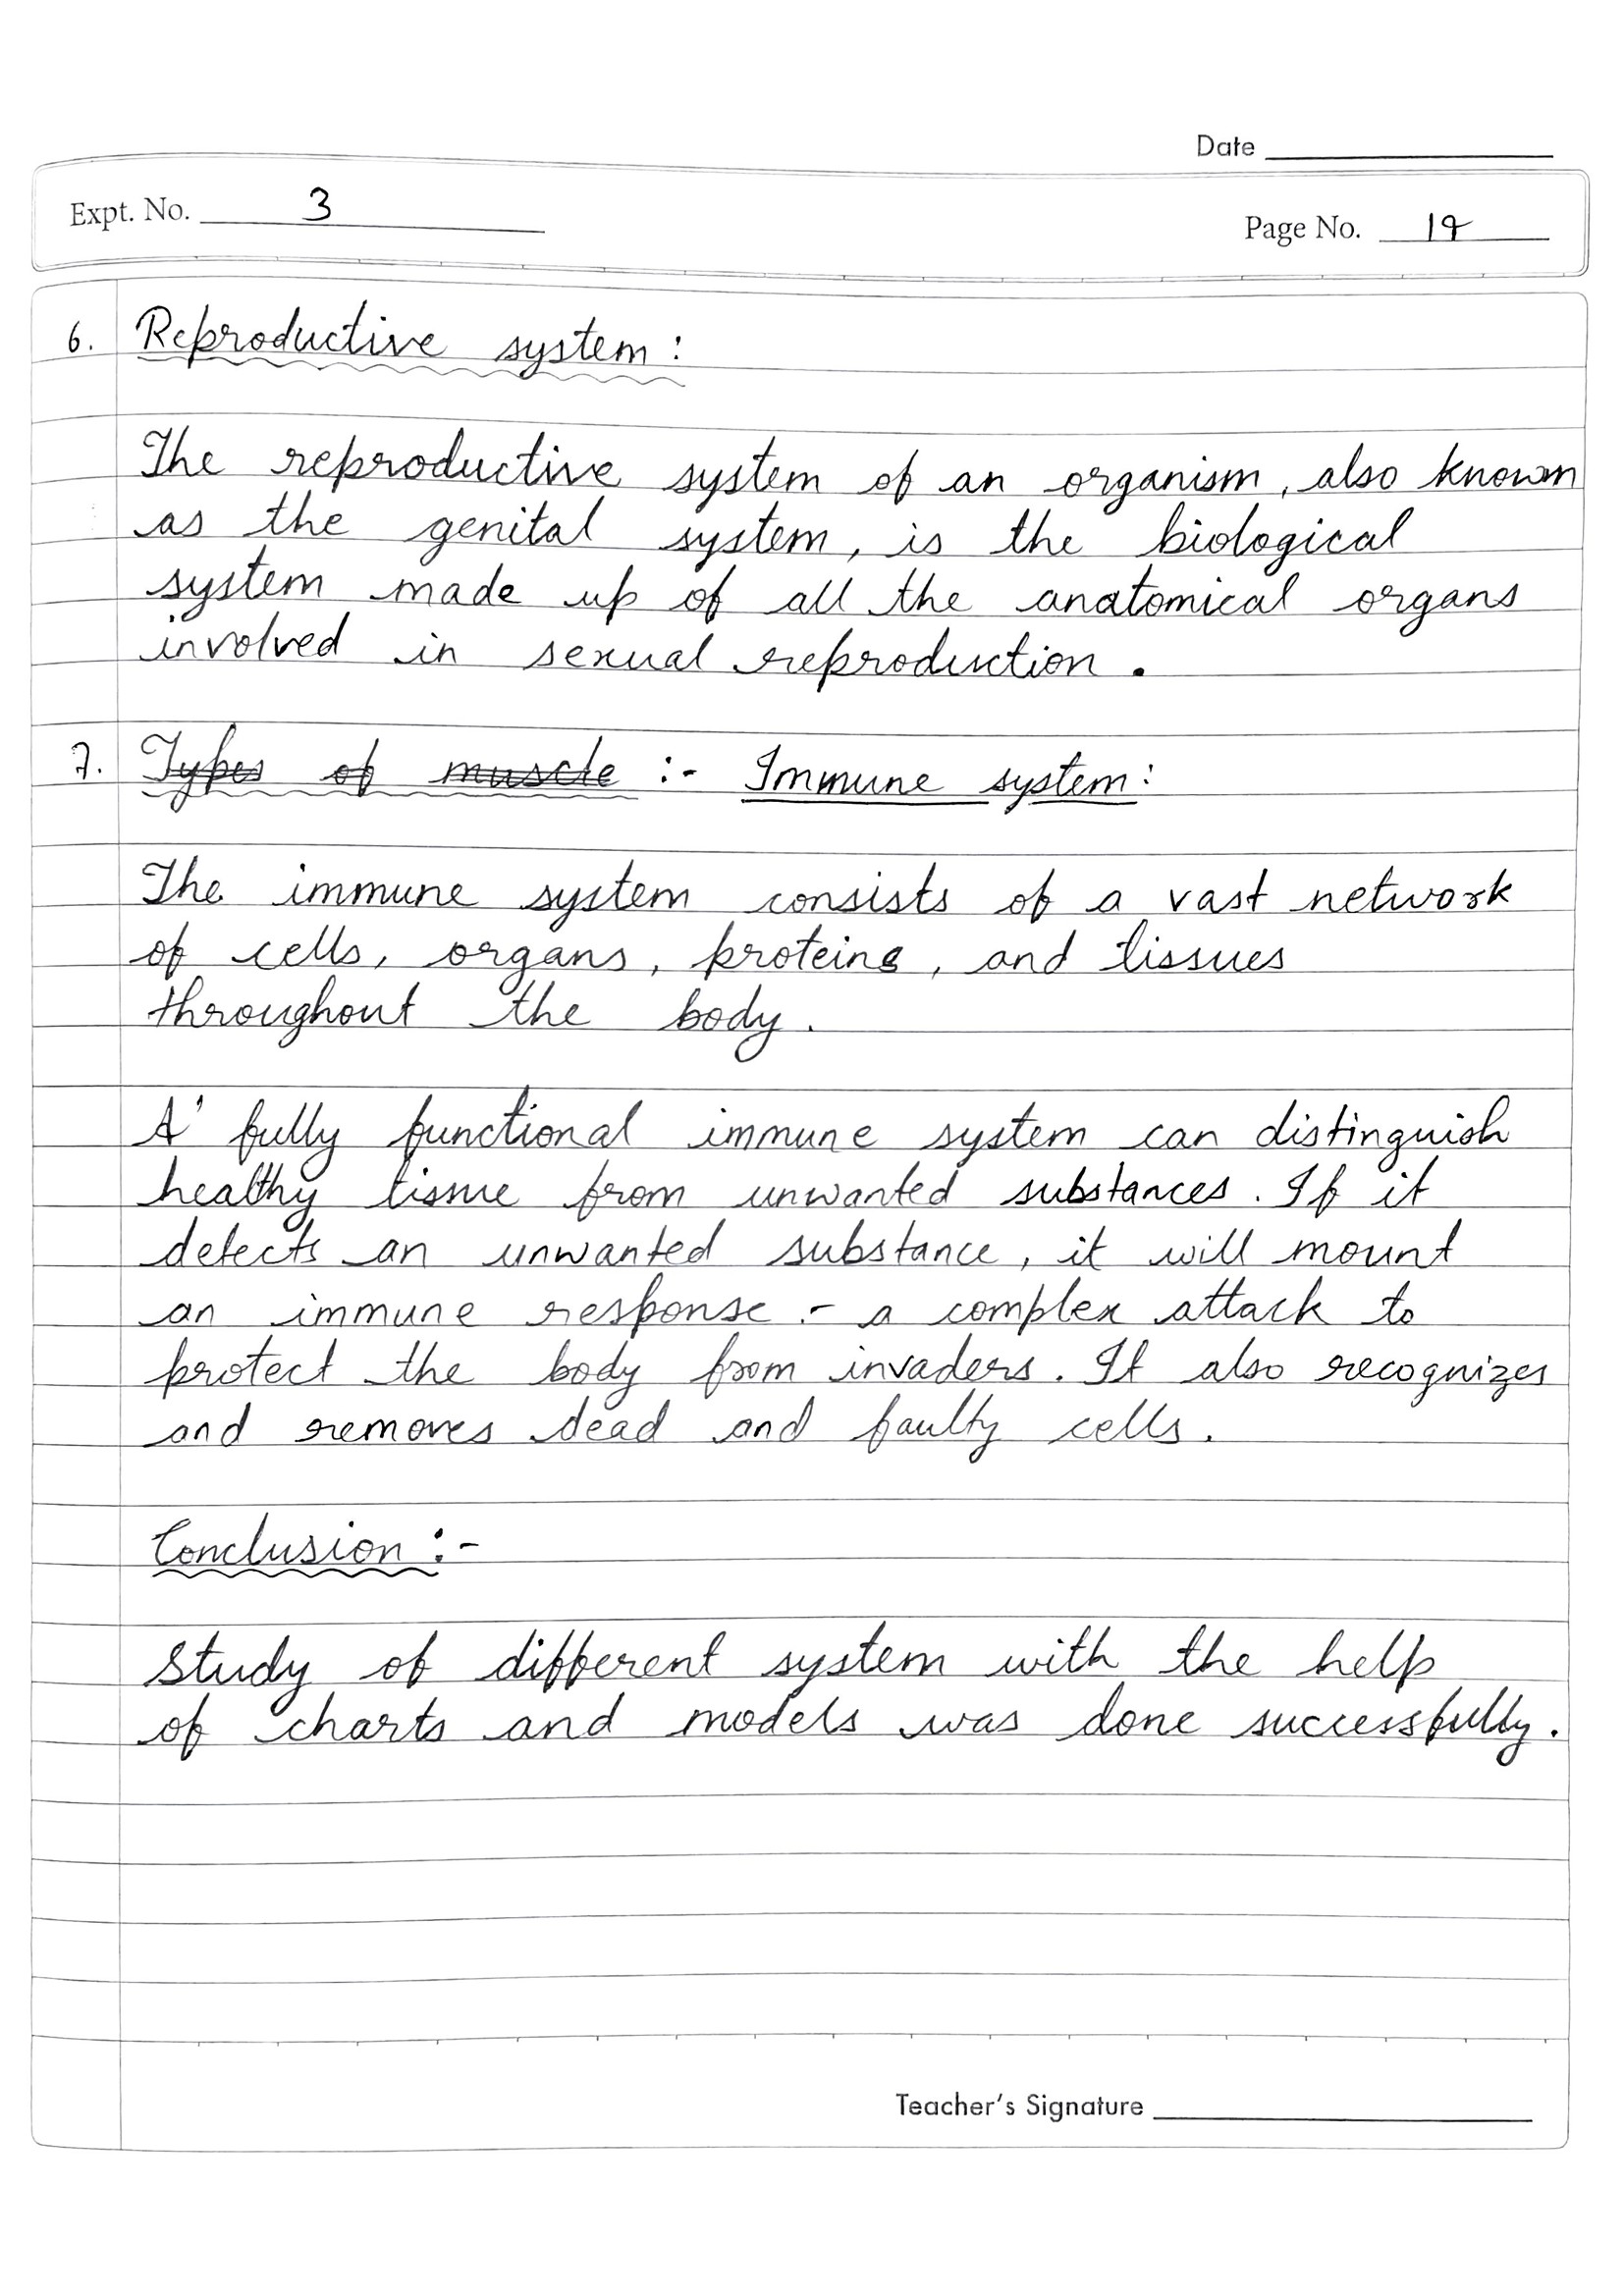 Date
Expt. No. 3
Page No. 19
6. Reproductive system:
The reproductive system of an organism, also known
as the genital system, is the biological
system made up of all the anatomical organs
involved in sexual reproduction.
7. Types of muscle :- Immune system:
The immune system consists of a vast network
of cells, organs, proteins, and tissues
throughout the body.
A fully functional immune system can distinguish
healthy tissue from unwanted substances. If it
detects an unwanted substance, it will mount
an immune response - a complex attack to
protect the body from invaders. It also recognizes
and removes dead and faulty cells.
Conclusion :-
Study of different system with the help
of charts and models was done successfully.
Teacher's Signature